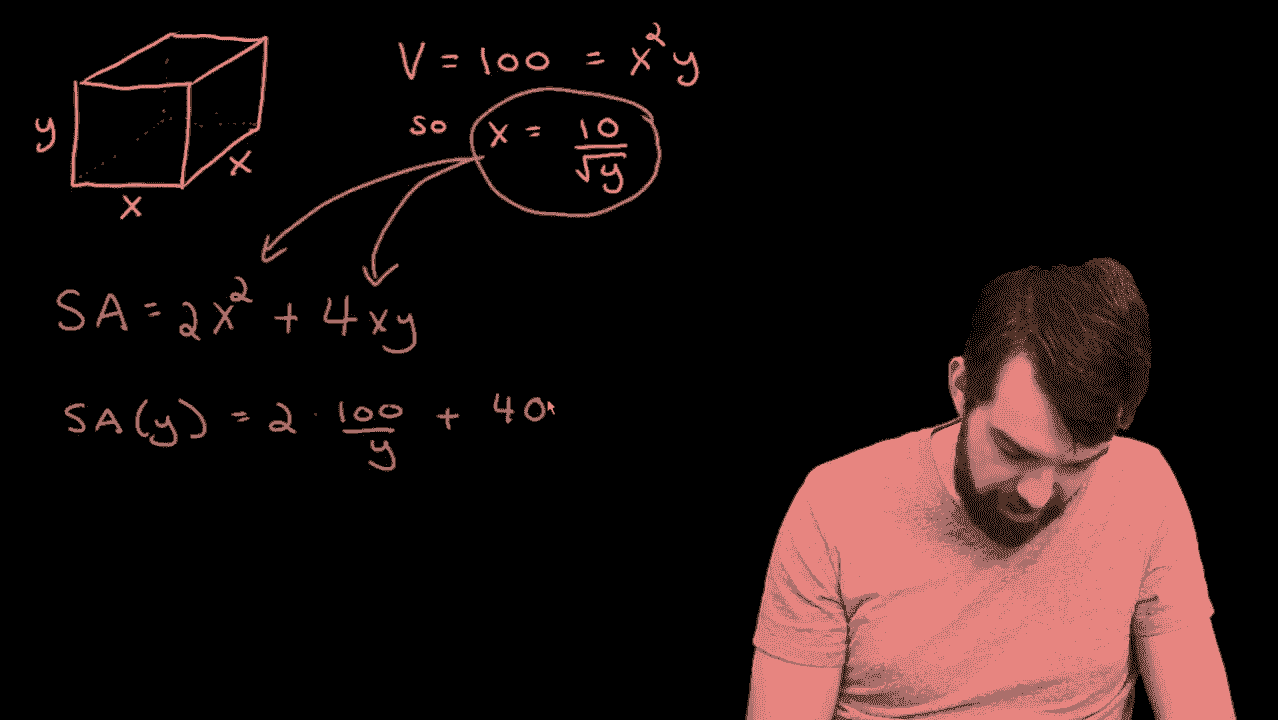 V = 100 = x²y
so x = 10/√y
y
x
x
SA = 2x² + 4xy
SA(y) = 2 · 100/y + 40